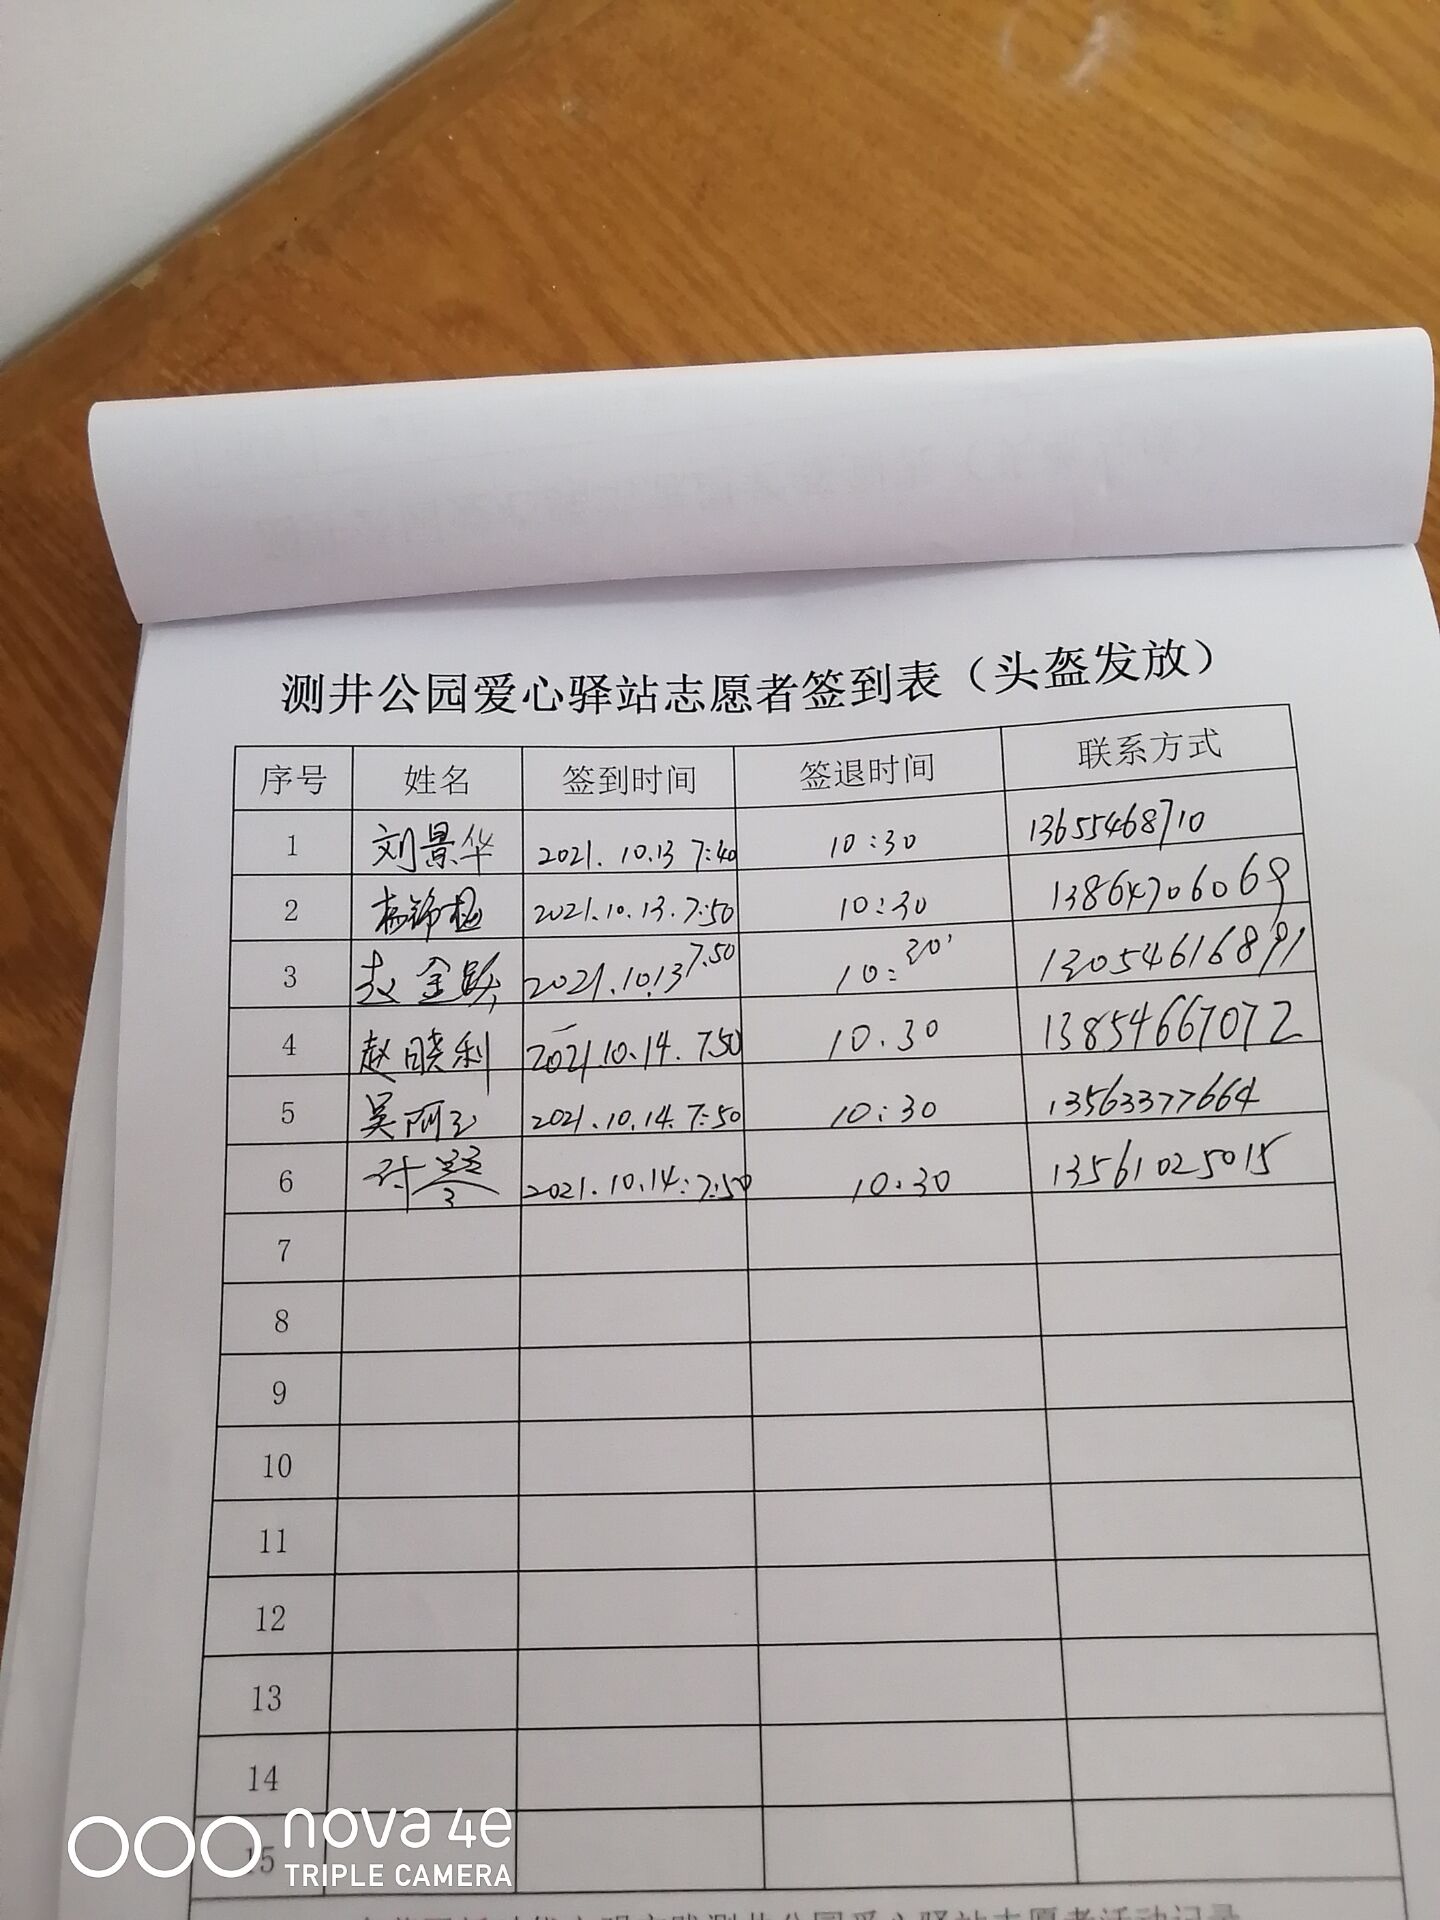 测井公园爱心驿站志愿者签到表（头盔发放）
序号 姓名 签到时间 签退时间 联系方式
1 刘景华 2021.10.13 7:40 10:30 13655468710
2 2021.10.13.7:50 10:30 13864706069
3 赵金 2021.10.13 7.50 10:30' 13054616891
4 赵晓利 2021.10.14.7:50 10.30 13854667072
5 吴丽玉 2021.10.14.7:50 10:30 13563377664
6 2021.10.14:7:50 10:30 13561025015
7
8
9
10
11
12
13
14
15
测井公园爱心驿站志愿者活动记录
nova 4e
TRIPLE CAMERA